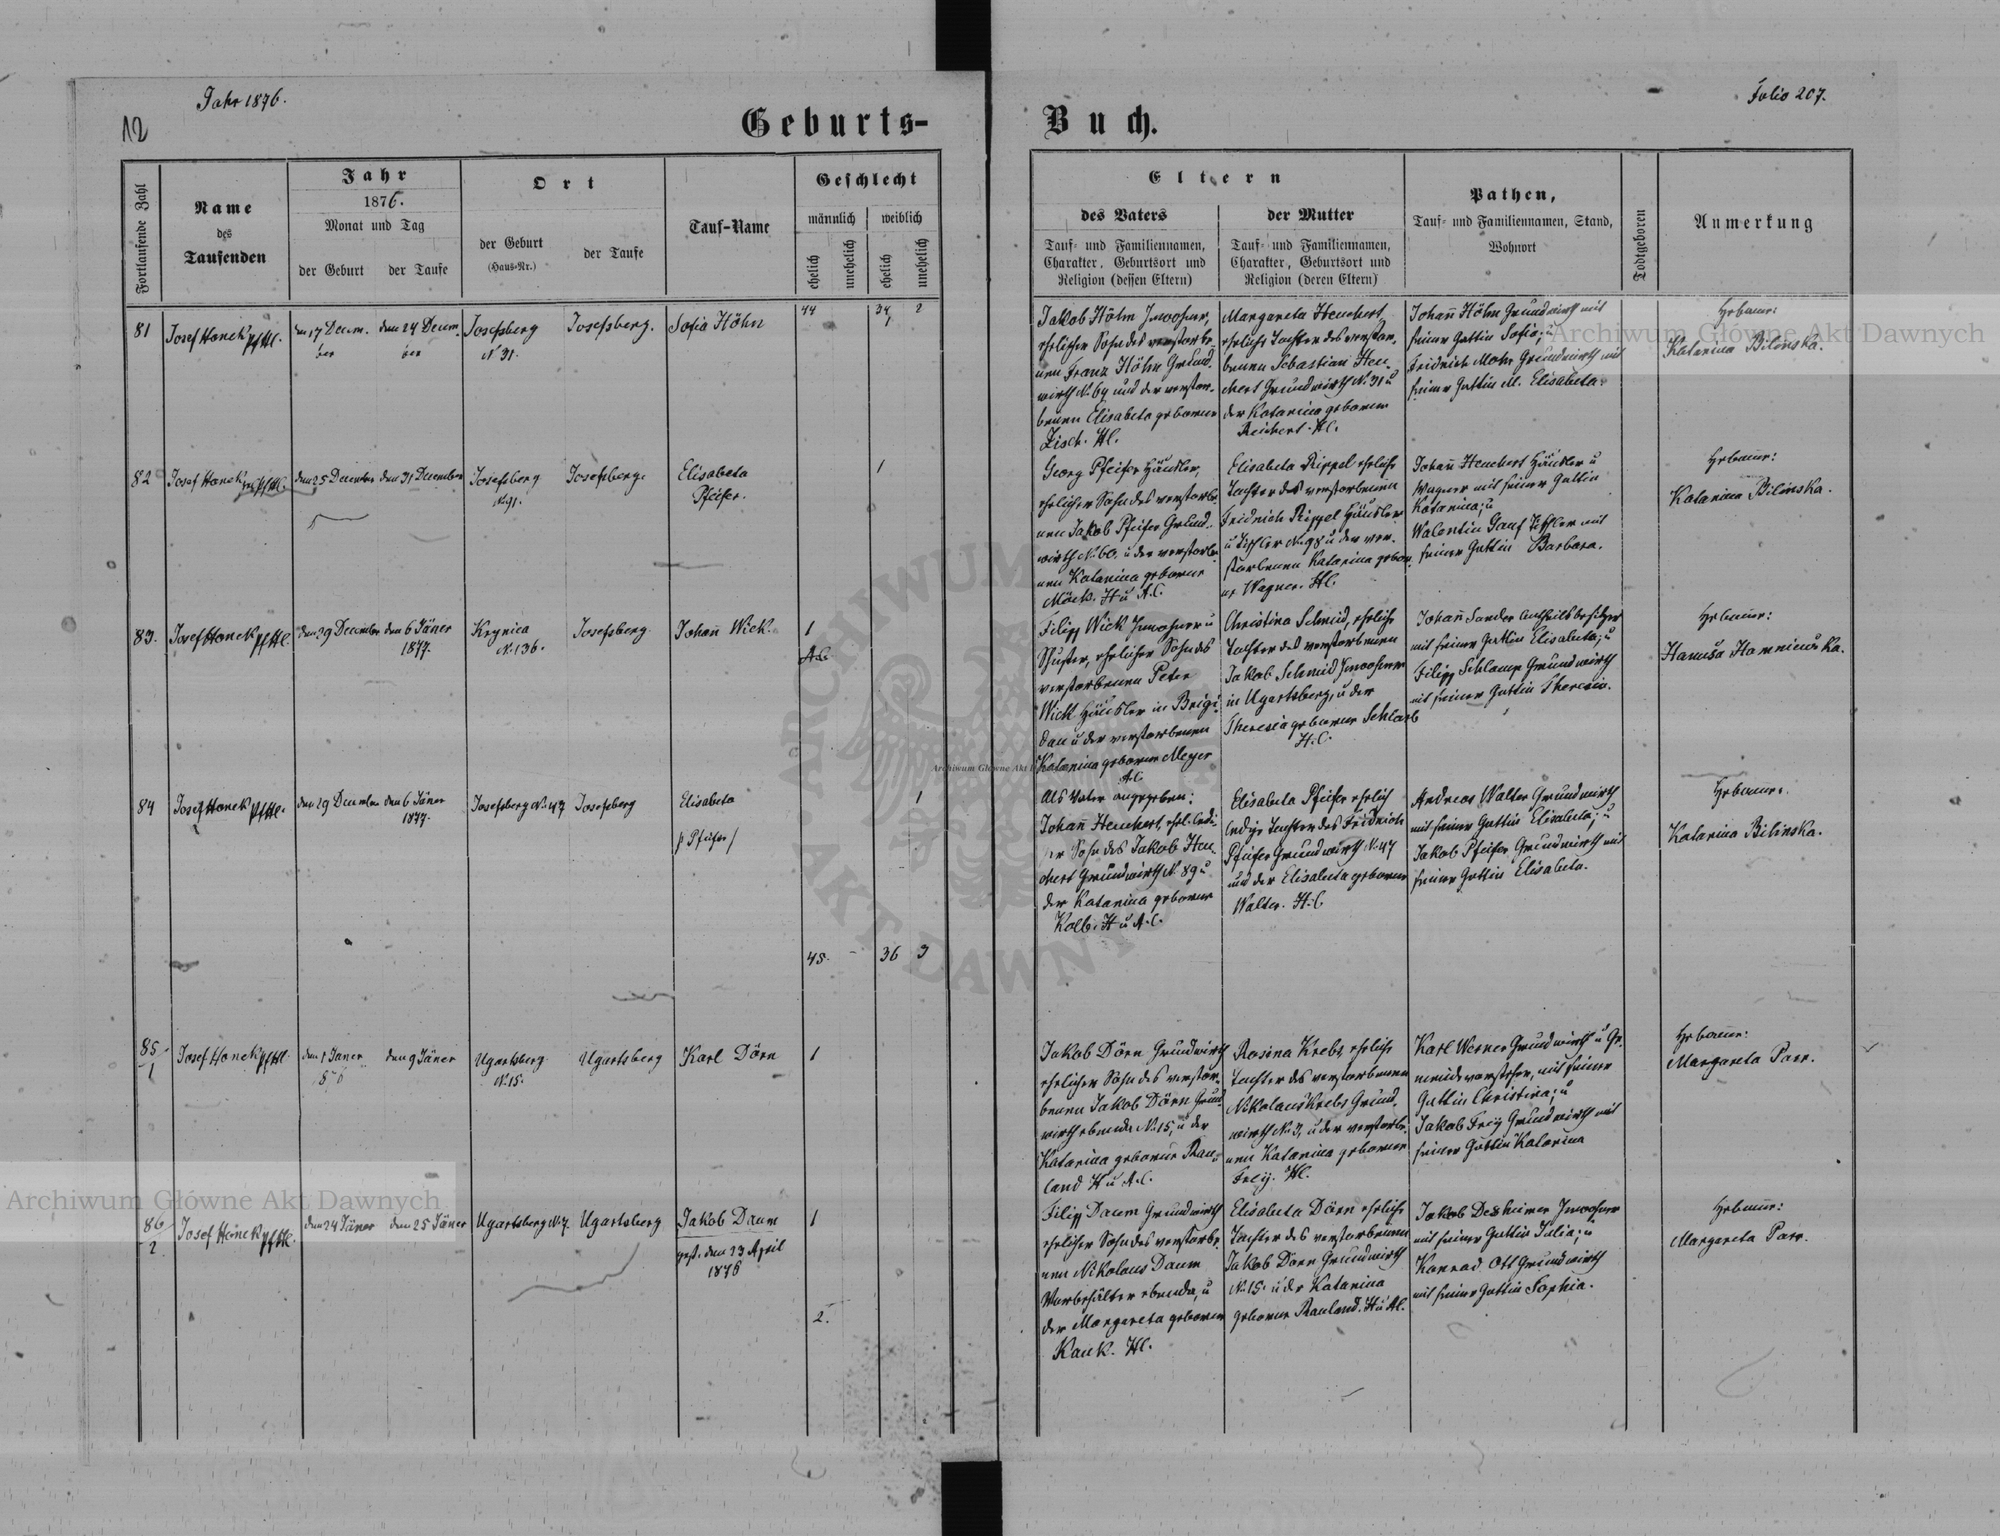 Jahr 1876.
Folio 207.
12
Geburts-
Buch.
Fortlaufende Zahl
Name
des
Taufenden
Jahr
1876.
Monat und Tag
der Geburt
der Taufe
Ort
der Geburt
(Haus-Nr.)
der Taufe
Tauf-Name
Geschlecht
männlich
weiblich
ehelich
unehelich
ehelich
unehelich
Eltern
des Vaters
Tauf- und Familiennamen,
Charakter, Geburtsort und
Religion (dessen Eltern)
der Mutter
Tauf- und Familiennamen,
Charakter, Geburtsort und
Religion (deren Eltern)
Pathen,
Tauf- und Familiennamen, Stand,
Wohnort
Todtgeboren
Anmerkung
44
34
2
81
Josef Hanek
den 17 Decem-
ber
den 24 Decem-
ber
Josefsberg
N. 31.
Josefsberg.
Sofia Höhn
1
Jakob Höhn Inwohner,
ehelicher Sohn des verstorbe-
nen Franz Höhn Grund-
wirth N. 64 und der verstor-
benen Elisabeta geborene
Zisch. HC.
Margareta Heuchert,
eheliche Tochter des verstor-
benen Sebastian Heu-
chert Grundwirth N. 31 u
der Katarina geborene
Reichert. HC.
Johañ Höhn Grundwirth mit
seiner Gattin Sofia; u
Fridrich Mohr Grundwirth mit
seiner Gattin M. Elisabeta.
Hebame:
Katarina Bilinska.
82
Josef Hanek
den 25 December
den 31 December
Josefsberg
N. 91.
Josefsberg
Elisabeta
Pfeifer.
1
Georg Pfeifer Häusler,
ehelicher Sohn des verstorbe-
nen Jakob Pfeifer Grund-
wirth N. 60. u der verstorbe-
nen Katarina geborene
Möck. H u A.C.
Elisabeta Rippel eheliche
Tochter des verstorbenen
Fridrich Rippel Häusler
u Tischler N. 98 u der ver-
storbenen Katarina gebor-
ne Wagner. HC.
Johañ Heuchert Häusler u
Wagner mit seiner Gattin
Katarina; u
Walentin Tischler mit
seiner Gattin Barbara.
Hebame:
Katarina Bilinska.
83.
Josef Hanek
den 29 December
den 6 Jäner
1877.
Krynica
N. 136.
Josefsberg
Johañ Wick.
1
A.C.
Filipp Wick Inwohner u
Schuster, ehelicher Sohn des
verstorbenen Peter
Wick Häusler in Brigi-
dau u der verstorbenen
Katarina geborene Meyer
A.C.
Christina Schmid, eheliche
Tochter des verstorbenen
Jakob Schmid Inwohner
in Ugartsberg, u der
Theresia geborene Schlarb
H.C.
Johañ Sander Antheilsbesitzer
mit seiner Gattin Elisabeta; u
Filipp Schlamp Grundwirth
mit seiner Gattin Theresia.
Hebame:
84
Josef Hanek
den 29 December
den 6 Jäner
1877.
Josefsberg N. 47
Josefsberg
Elisabeta
/Pfeifer/
1
Als Vater angegeben:
Johañ Heuchert, ehel. ledi-
ger Sohn des Jakob Heu-
chert Grundwirth N. 89 u
der Katarina geborene
Kolb. H u A.C.
Elisabeta Pfeifer ehelich
ledige Tochter des Fridrich
Pfeifer Grundwirth N. 47
und der Elisabeta geborene
Walter. H.C.
Andreas Walter Grundwirth
mit seiner Gattin Elisabeta; u
Jakob Pfeifer Grundwirth mit
seiner Gattin Elisabeta.
Hebame:
Katarina Bilinska.
45.
-
36
3
85
1
Josef Hanek
den 1 Janer
den 9 Jäner
Ugartsberg
N. 15.
Ugartsberg
Karl Dörn
1
Jakob Dörn Grundwirth
ehelicher Sohn des verstor-
benen Jakob Dörn Grund-
wirth ebenda N. 15, u der
Katarina geborene Rau-
land H u A.C.
Rosina Krebs, eheliche
Tochter des verstorbenen
Nikolaus Krebs Grund-
wirth N. 3, u der verstorbe-
nen Katarina geborene
Frey. HC.
Karl Werner Grundwirth u Ge-
meindevorsteher, mit seiner
Gattin Christina; u
Jakob Frey Grundwirth mit
seiner Gattin Katarina
Hebame:
Margareta Parr.
86
2
Josef Hanek
den 24 Jäner
den 25 Jäner
Ugartsberg N. 7.
Ugartsberg
Jakob Daum
gest. den 23 April
1876
1
2.
Filipp Daum Grundwirth
ehelicher Sohn des verstorbe-
nen Nikolaus Daum
Vorbehälter ebenda, u
der Margareta geborene
Kauk. HC.
Elisabeta Dörn eheliche
Tochter des verstorbenen
Jakob Dörn Grundwirth
N. 15. u der Katarina
geborene Rauland. H u AC.
Jakob Desheimer Inwohner
mit seiner Gattin Julia; u
Konrad Ott Grundwirth
mit seiner Gattin Sophia.
Hebame:
Margareta Parr.
Archiwum Główne Akt Dawnych
Archiwum Główne Akt Dawnych
ARCHIWUM
AKT DAWNYCH